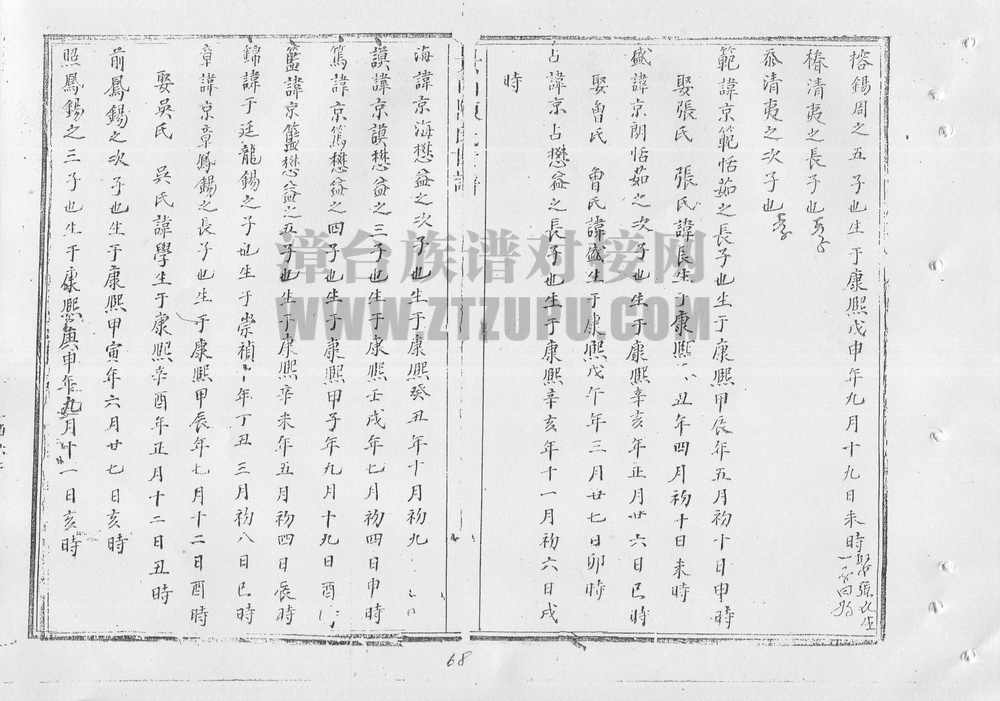 榕錫周之五子也生于康熙戊申年九月十九日未時
椿清夷之長子也
忝清夷之次子也
範諱京範恬茹之長子也生于康熙甲辰年五月初十日申時
娶張氏 張氏諱長生于康熙 丑年四月初十日未時
盛諱京朗恬茹之次子也生于康熙辛亥年正月廿六日巳時
娶魯氏 魯氏諱盛生于康熙戊午年三月廿七日卯時
占諱京占懋益之長子也生于康熙辛亥年十一月初六日戌
時
海諱京海懋益之次子也生于康熙癸丑年十月初九
謨諱京謨懋益之三子也生于康熙壬戌年七月初四日申時
篤諱京篤懋益之四子也生于康熙甲子年九月十九日酉
籃諱京籃懋益之五子也生于康熙辛未年五月初四日辰時
錦諱于廷龍錫之子也生于崇禎十年丁丑三月初八日巳時
章諱京章鳳錫之長子也生于康熙甲辰年七月十二日酉時
娶吳氏 吳氏諱學生于康熙辛酉年正月十二日丑時
前鳳錫之次子也生于康熙甲寅年六月廿七日亥時
照鳳錫之三子也生于康熙庚申年九月十一日亥時
68
漳台族谱对接网
WWW.ZTZUPU.COM